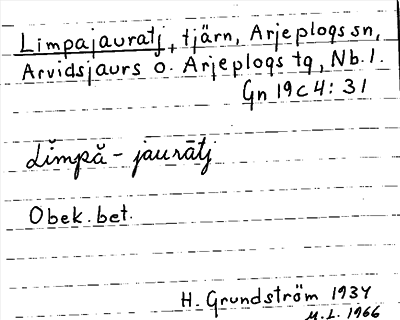 Limpajauratj, tjärn, Arjeplogs sn,
Arvidsjaurs o. Arjeplogs tg, Nb. l.
Gn 19 c 4: 31
Lĭmpă - jaurātj
Obek. bet.
H. Grundström 1934
M. L. 1966